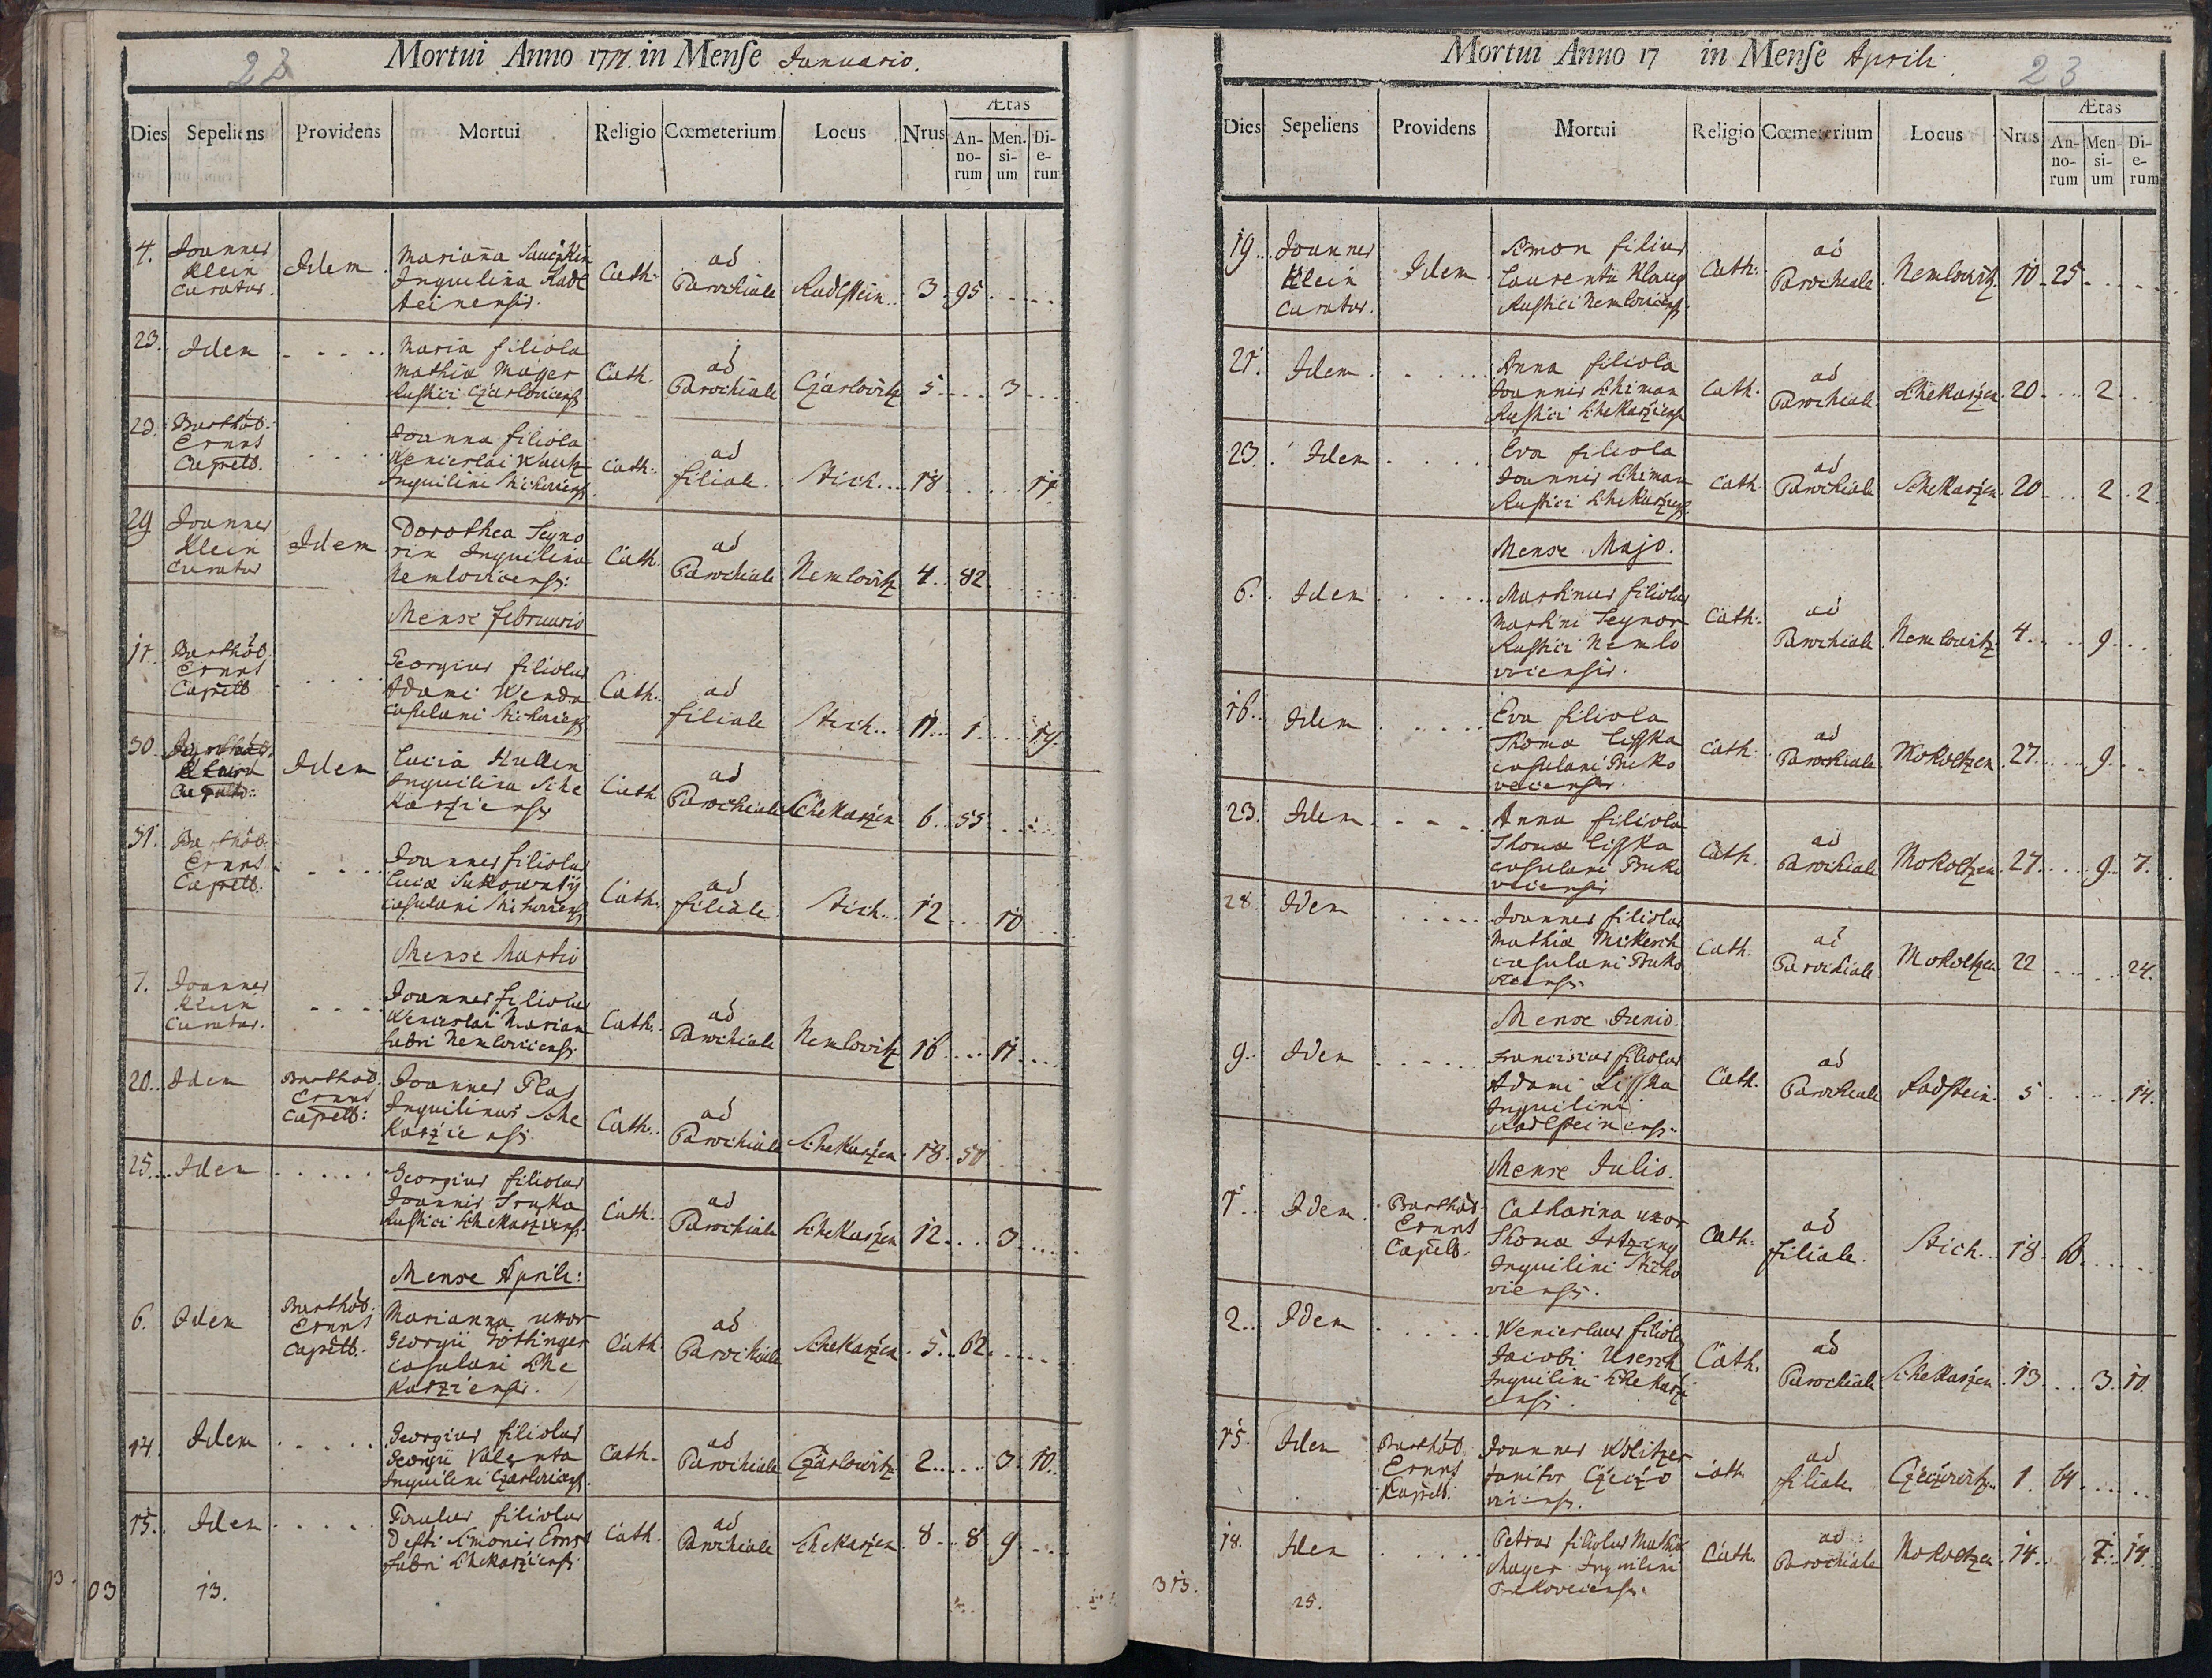 23
Mortui Anno 1777. in Mense Januario.
Dies Sepeliens Providens Mortui Religio Cœmeterium Locus Nrus Ætas
Annorum Mensium Dierum
4. Joannes Klein Curatus. Idem Marianna Inquilina Radlsteinensis. Cath. ad Parochiale Radlstein.. 3. 95.
23. Idem Maria filiola Mathiæ Mayer Rustici Czarloviciens. Cath. ad Parochiale Czarlovitz 5 3
23. Barthol. Ernst Capell. Joanna filiola Wenceslai Inquilini Cath. ad filiale. Stich... 18 17.
29 Joannes Klein Curatus Idem Dorothea Seynorin Inquilina Nemloviciensis: Cath. ad Parochiale Nemlovitz 4.. 82
Mense Februario
17. Barthol. Ernst Capell Georgius filiolus Adami Wenda casulani Cath. ad filiale Stich.. 11.. 1. 19.
30. Idem Lucia Inquilina Schekarziensis Cath ad Parochiale Schekarzen 6. 55
31. Barthol. Ernst Capell. Joannes filiolus Lucæ casulani Cath. ad filiale. Stich.. 12 10
Mense Martio
7. Joannes Klein Curatus. Joannes filiolus Wenceslai Marian fabri Nemloviciensis Cath. ad Parochiale Nemlovitz 16 11
20. Idem Barthol. Ernst Capell: Joannes Flas Inquilinus Schekarziensis. Cath.. ad Parochiale Schekarzen 18. 50
25... Idem Georgius filiolus Joannis Sruka Rustici Schekarziens. Cath. ad Parochiale Schekarzen 12. 3
Mense Aprili:
6. Idem Barthol. Ernst Capell. Marianna uxor Georgii Göttinger casulani Schekarziensis. Cath. ad Parochiale Schekarzen. 5. 62.
14. Idem Georgius filiolus Georgii Valenta Inquilini Czarloviciens. Cath. ad Parochiale Czarlovitz. 2 3. 10.
15. Idem Paulus filiolus Defti Simonis Ernst fabri Schekarziensis Cath. ad Parochiale Schekarzen. 8 8 9
03 13.
Mortui Anno 17 in Mense Aprili
23
Dies Sepeliens Providens Mortui Religio Cœmeterium Locus Nrus Ætas
Annorum Mensium Dierum
19. Joannes Klein Curatus. Idem Simon filius Laurentii Rustici Nemloviciens. Cath. ad Parochiale. Nemlovitz. 10. 25
21. Idem. Anna filiola Joannis Schiman Rustici Schekarziens Cath. ad Parochiale. Schekarzen. 20 2
23. Idem Eva filiola Joannis Schiman Rustici Schekarziens Cath. ad Parochiale Schekarzen. 20 2. 2.
Mense Majo.
6. Idem Martinus filiolus Martini Seynor Rustici Nemloviciensis. Cath. ad Parochiale Nemlovitz. 4. 9
16.. Idem Eva filiola Thomæ Lisska casulani Bukoveciensis. Cath. ad Parochiale Mokoltzen. 27. 9
23. Idem Anna filiola Thomæ Lisska casulani Bukoveciensis Cath. ad Parochiale Mokoltzen. 27. 9. 7.
28. Idem Joannes filiolus Mathiæ casulani Bukoveciensis Cath. ad Parochiale Mokoltzen 22 24.
Mense Junio.
9. Idem Franciscus filiolus Adami Lisska Inquilini Radlsteinens. Cath. ad Parochiale Radstein. 5 14.
Mense Julio.
1. Idem. Barthol. Ernst Capell. Catharina uxor Thomæ Inquilini Stichoviensis. Cath. ad filiale. Stich.. 18. 60.
2. Idem Wenceslaus filiolus Jacobi Inquilini Schekarziensis. Cath. ad Parochiale Schekarzen. 13. 3. 10.
15. Idem Barthol. Ernst Capell. Joannes Janitor Cath. ad filiale 1. 64
18. Idem Petrus filiolus Mathiæ Mayer Inquilini Bukoveciensis. Cath. ad Parochiale Mokoltzen 14. 14.
313. 25.